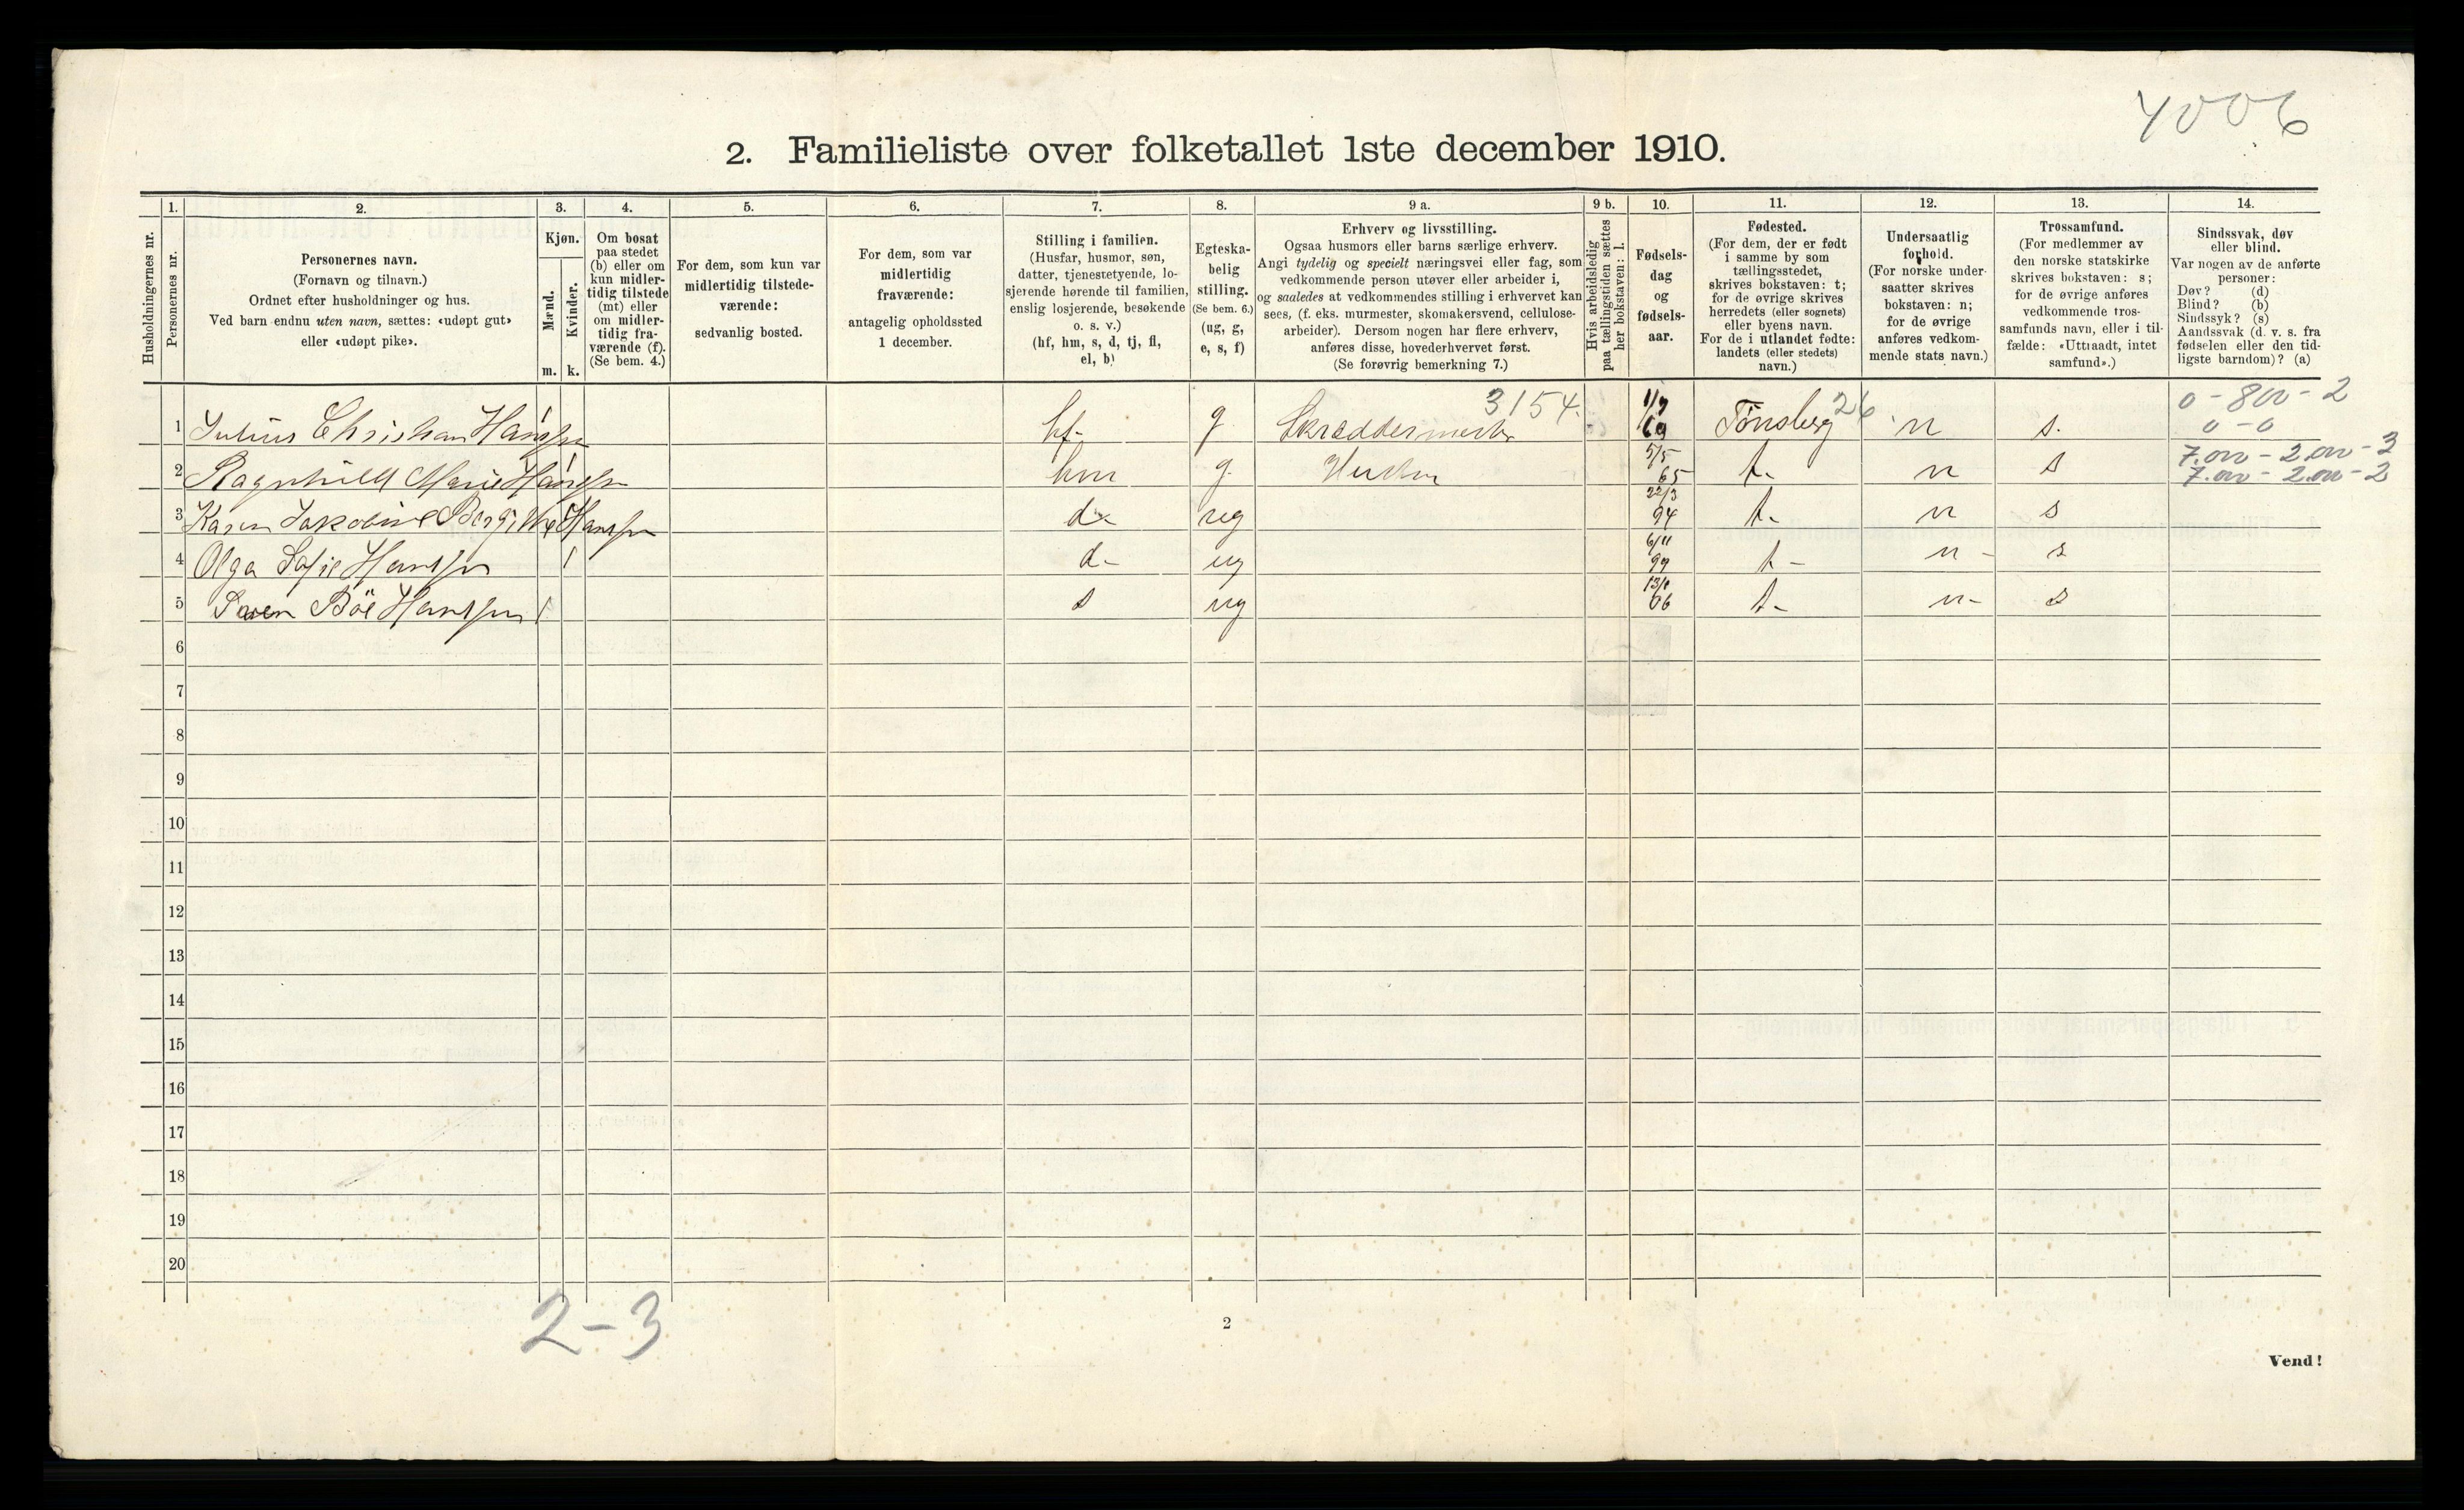 4006
2. Familieliste over folketallet 1ste december 1910.
1. 2. 3. 4. 5. 6. 7. 8. 9 a. 9 b. 10. 11. 12. 13. 14.
Husholdningernes nr.
Personernes nr.
Personernes navn.
(Fornavn og tilnavn.)
Ordnet efter husholdninger og hus.
Ved barn endnu uten navn, sættes: «udøpt gut»
eller «udøpt pike».
Kjøn.
Mænd.
Kvinder.
m. k.
Om bosat
paa stedet
(b) eller om
kun midler-
tidig tilstede
(mt) eller
om midler-
tidig fra-
værende (f).
(Se bem. 4.)
For dem, som kun var
midlertidig tilstede-
værende:
sedvanlig bosted.
For dem, som var
midlertidig
fraværende:
antagelig opholdssted
1 december.
Stilling i familien.
(Husfar, husmor, søn,
datter, tjenestetyende, lo-
sjerende hørende til familien,
enslig losjerende, besøkende
o. s. v.)
(hf, hm, s, d, tj, fl,
el, b)
Egteska-
belig
stilling.
(Se bem. 6.)
(ug, g,
e, s, f)
Erhverv og livsstilling.
Ogsaa husmors eller barns særlige erhverv.
Angi tydelig og specielt næringsvei eller fag, som
vedkommende person utøver eller arbeider i,
og saaledes at vedkommendes stilling i erhvervet kan
sees, (f. eks. murmester, skomakersvend, cellulose-
arbeider). Dersom nogen har flere erhverv,
anføres disse, hovederhvervet først.
(Se forøvrig bemerkning 7.)
Hvis arbeidsledig
paa tællingstiden sættes
her bokstaven: l.
Fødsels-
dag
og
fødsels-
aar.
Fødested.
(For dem, der er født
i samme by som
tællingsstedet,
skrives bokstaven: t;
for de øvrige skrives
herredets (eller sognets)
eller byens navn.
For de i utlandet fødte:
landets (eller stedets)
navn.)
Undersaatlig
forhold.
(For norske under-
saatter skrives
bokstaven: n;
for de øvrige
anføres vedkom-
mende stats navn.)
Trossamfund.
(For medlemmer av
den norske statskirke
skrives bokstaven: s;
for de øvrige anføres
vedkommende tros-
samfunds navn, eller i til-
fælde: «Uttraadt, intet
samfund».)
Sindssvak, døv
eller blind.
Var nogen av de anførte
personer:
Døv? (d)
Blind? (b)
Sindssyk? (s)
Aandssvak (d. v. s. fra
fødselen eller den tid-
ligste barndom)? (a)
1 Julius Christian Hanssen 1 hf- g Skræddermester 3154. 1/7 69 Tønsberg 26 n s. 0-800-2
0-0
2 Ragnhild Marie Hanssen 1 hm g 5/5 65 t- n s 7.000-2.000-3
7.000-2.000-2
3 Karen Jakobine Bergitthe Hanssen d- ug 22/3 94 t- n s
4 Olga Sofie Hanssen 1 d- ug 6/11 99 t- n- s
5 Svен Böe Hanssen 1 s ug 06 t- n- s
6
7
8
9
10
11
12
13
14
15
16
17
18
19
20
2-3
2
Vend!